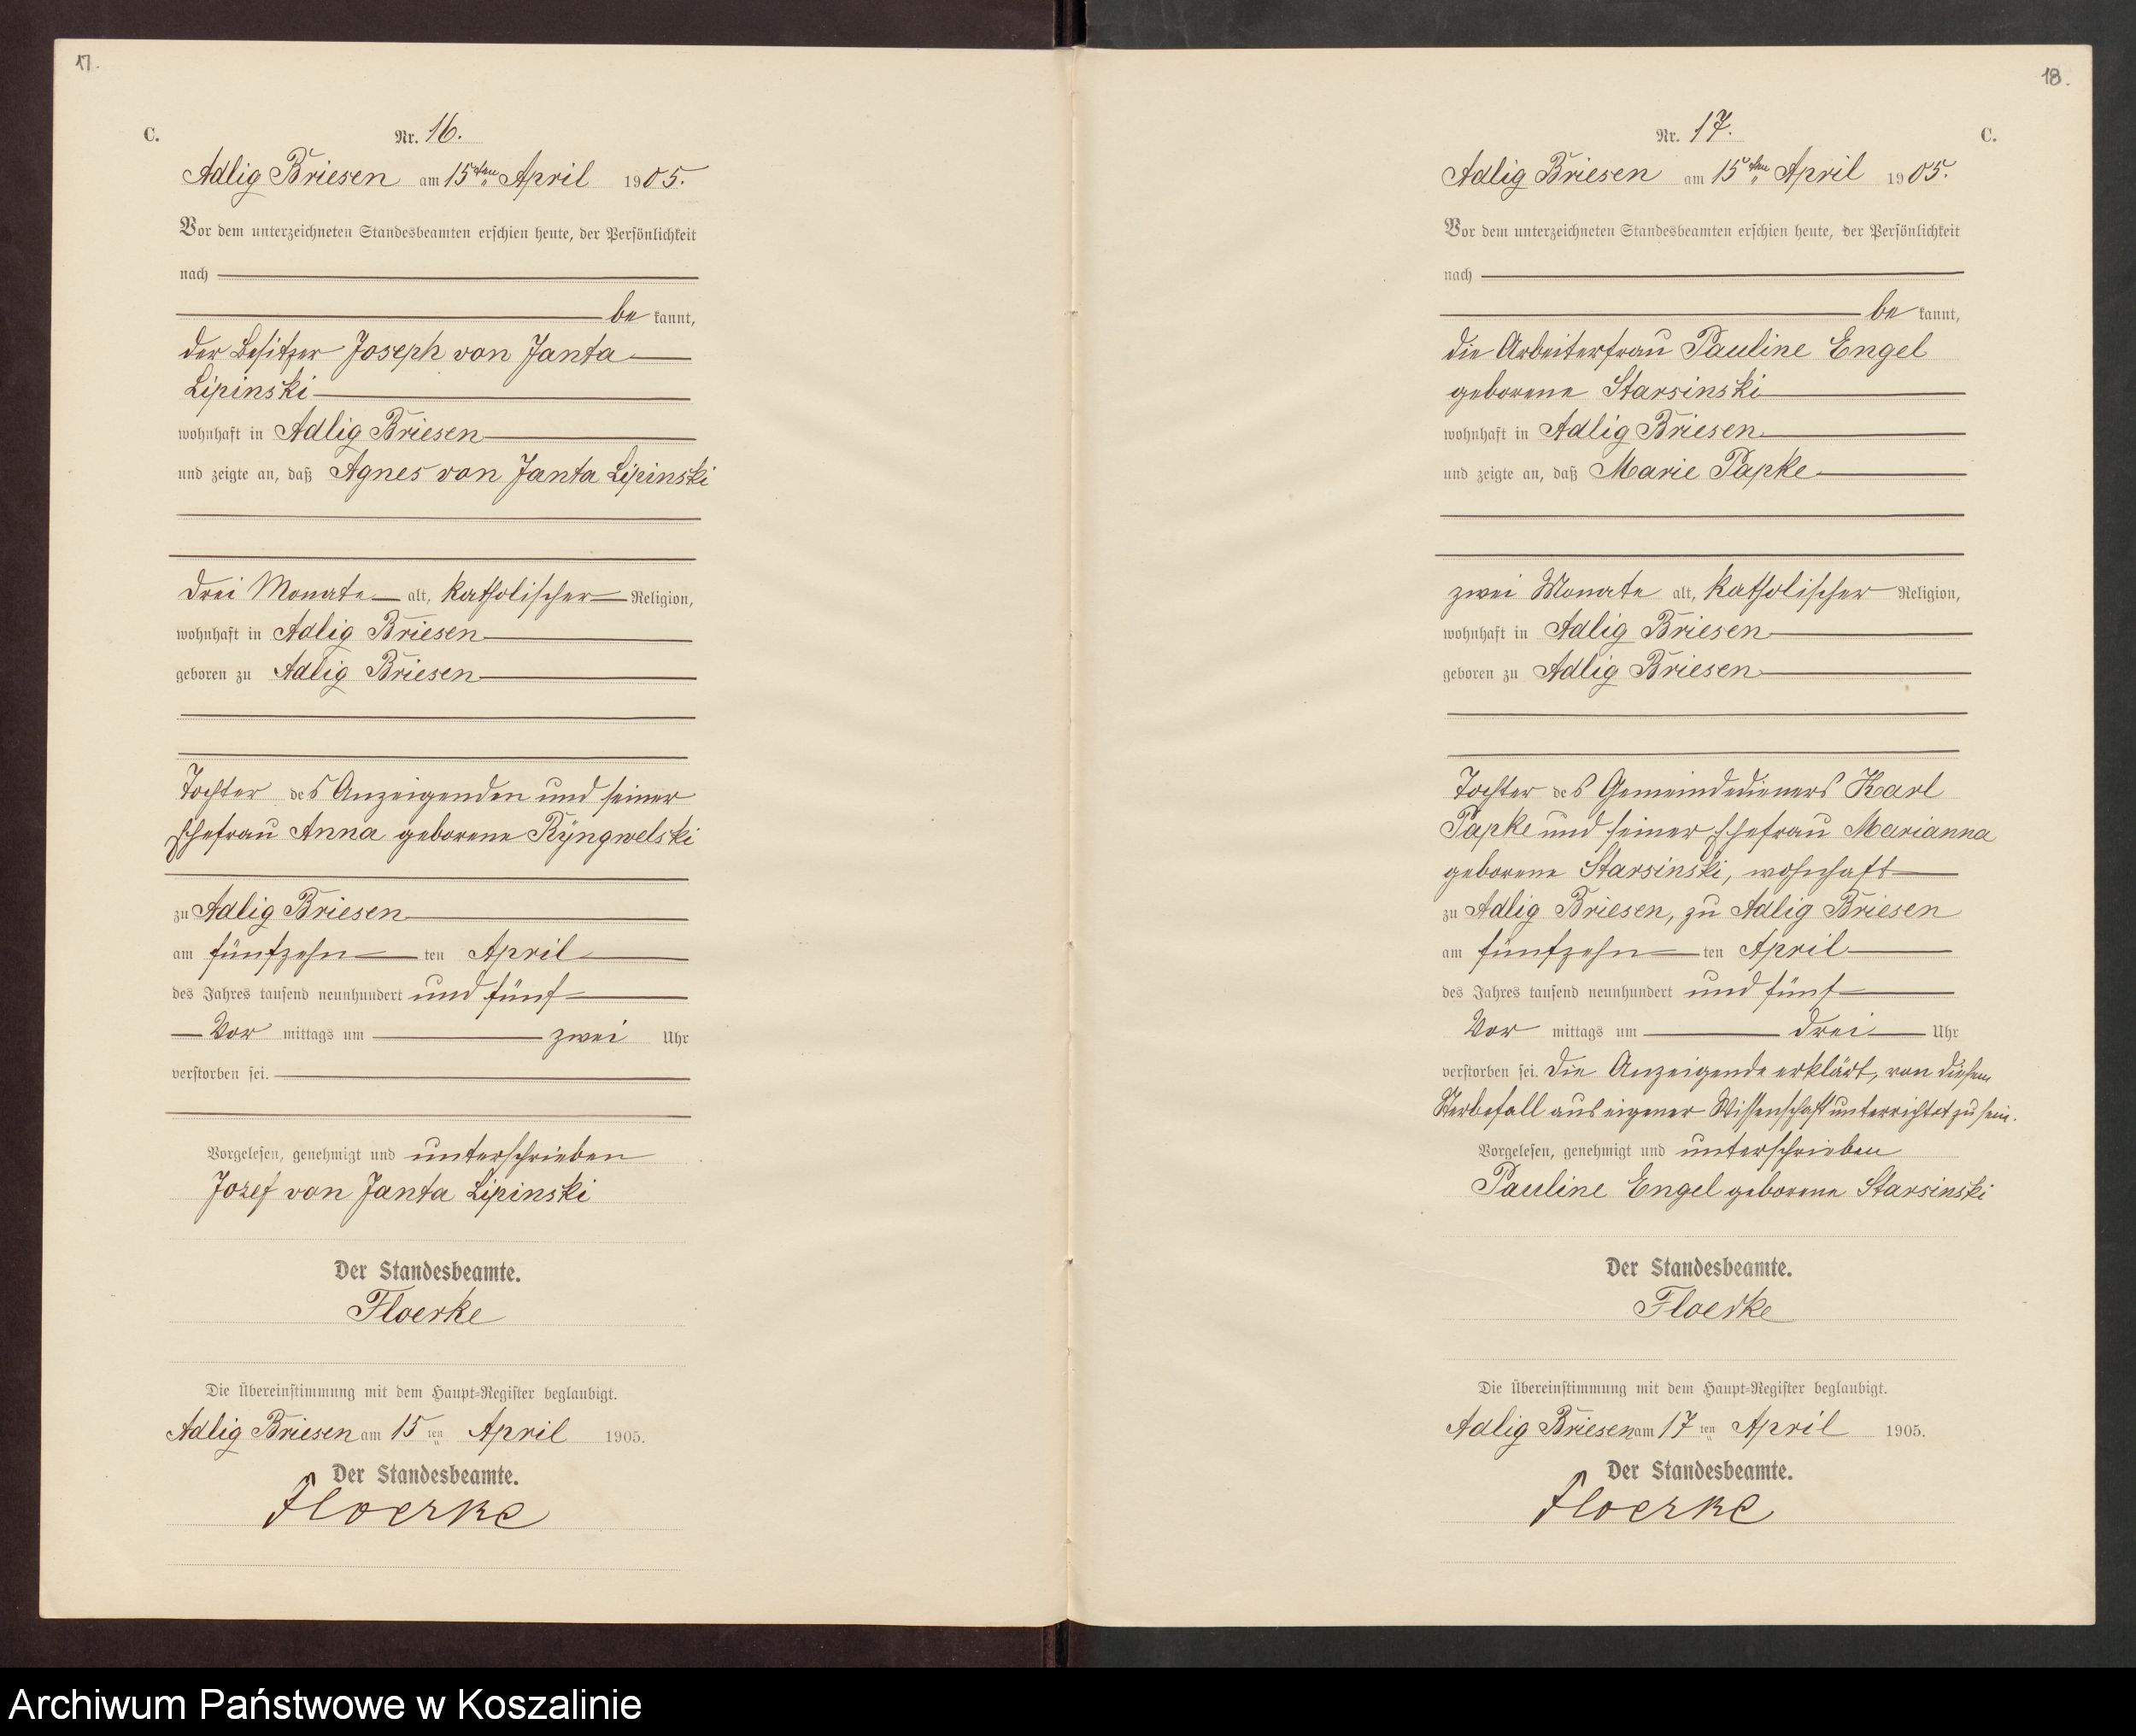 17.
C.
Nr. 16.
Adlig Briesen am 15ten April 1905.
Vor dem unterzeichneten Standesbeamten erschien heute, der Persönlichkeit
nach
be kannt,
der Besitzer Joseph von Janta
Lipinski
wohnhaft in Adlig Briesen
und zeigte an, daß Agnes von Janta Lipinski
drei Monate alt, katholischer Religion,
wohnhaft in Adlig Briesen
geboren zu Adlig Briesen
Tochter des Anzeigenden und seiner
Ehefrau Anna geborene Ryngwelski
zu Adlig Briesen
am fünfzehn ten April
des Jahres tausend neunhundert und fünf
Vor mittags um zwei Uhr
verstorben sei.
Vorgelesen, genehmigt und unterschrieben
Jozef von Janta Lipinski
Der Standesbeamte.
Floerke
Die Übereinstimmung mit dem Haupt-Register beglaubigt.
Adlig Briesen am 15 ten April 1905.
Der Standesbeamte.
Floerke
18.
C.
Nr. 17.
Adlig Briesen am 15ten April 1905.
Vor dem unterzeichneten Standesbeamten erschien heute, der Persönlichkeit
nach
be kannt,
die Arbeiterfrau Pauline Engel
geborene Starsinski
wohnhaft in Adlig Briesen
und zeigte an, daß Marie Papke
zwei Monate alt, katholischer Religion,
wohnhaft in Adlig Briesen
geboren zu Adlig Briesen
Tochter des Gemeindedieners Karl
Papke und seiner Ehefrau Marianna
geborene Starsinski, wohnhaft
zu Adlig Briesen, zu Adlig Briesen
am fünfzehn ten April
des Jahres tausend neunhundert und fünf
Vor mittags um drei Uhr
verstorben sei. Die Anzeigende erklärt, von diesem
Sterbefall aus eigener Wissenschaft unterrichtet zu sein.
Vorgelesen, genehmigt und unterschrieben
Pauline Engel geborene Starsinski
Der Standesbeamte.
Floerke
Die Übereinstimmung mit dem Haupt-Register beglaubigt.
Adlig Briesen am 17 ten April 1905.
Der Standesbeamte.
Floerke
Archiwum Państwowe w Koszalinie